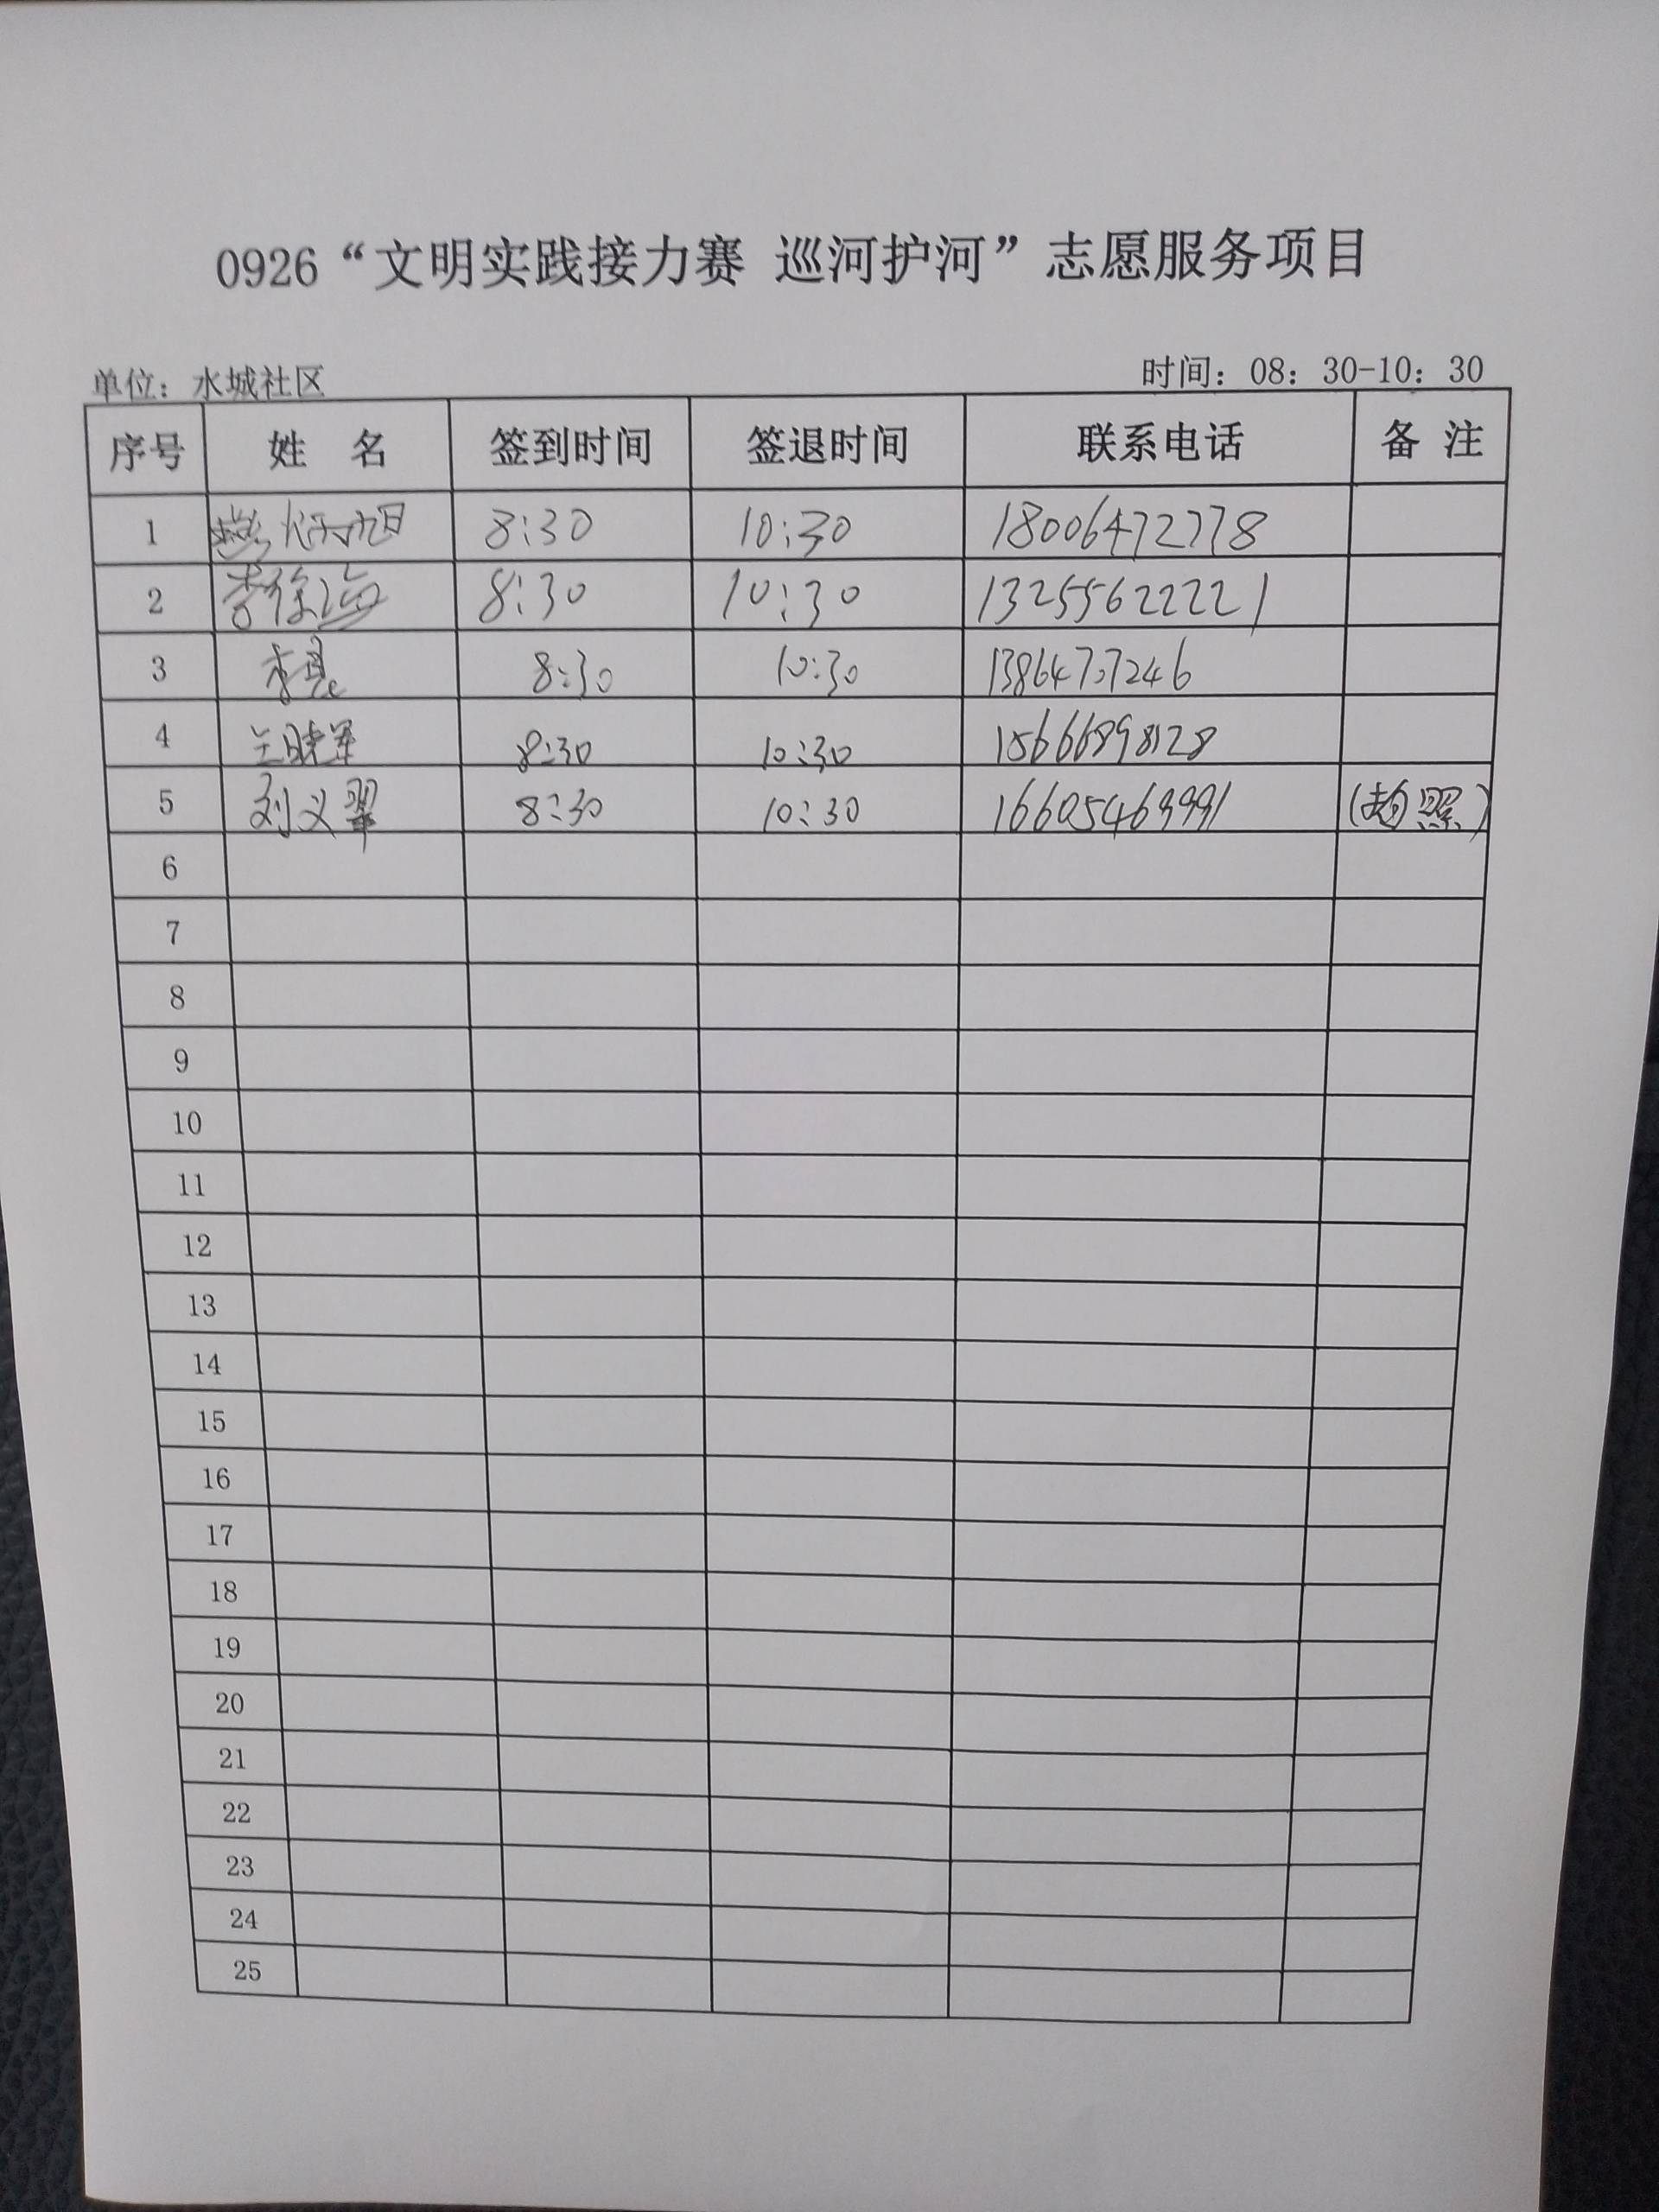 0926“文明实践接力赛 巡河护河”志愿服务项目
单位：水城社区 时间：08：30-10：30
序号 姓 名 签到时间 签退时间 联系电话 备 注
1 8:30 10:30 18006472778
2 李徐海 8:30 10:30 13255622221
3 李晨 8:30 10:30 13864737246
4 王晓军 8:30 10:30 15666898128
5 刘义翠 8:30 10:30 16605469991 (拍照)
6
7
8
9
10
11
12
13
14
15
16
17
18
19
20
21
22
23
24
25